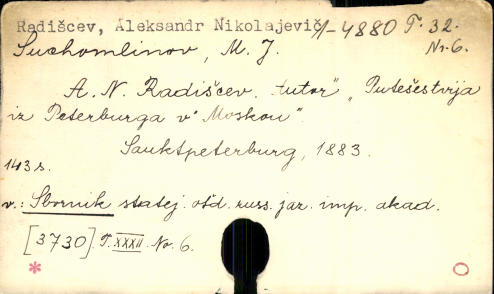 Radišcev, Aleksandr Nikolajevič 1-4880 T. 32.
Suchomlinov, M. J. Nr. 6.
A. N. Radišcev. Autor "Putešestvija
iz Peterburga v Moskou".
Sanktpeterburg, 1883.
143 s.
v.: Sbornik statej. otd. russ. jaz. imp. akad.
[3730] T. XXXII. No. 6.
*